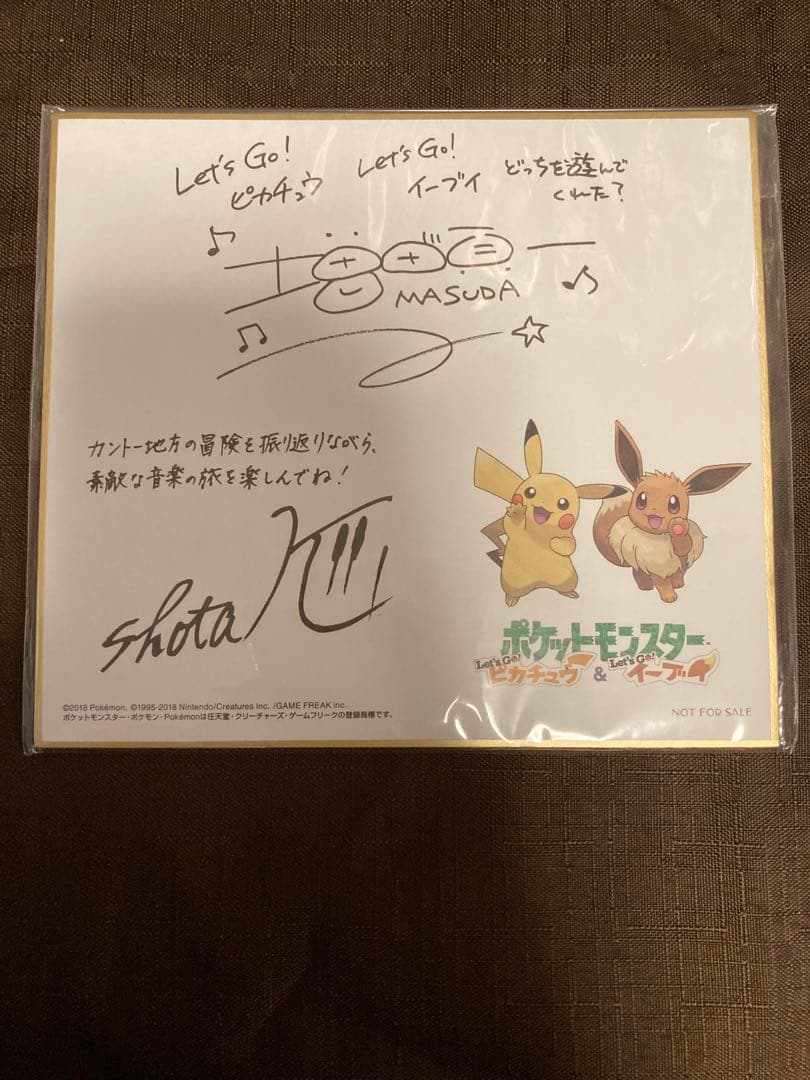 Let's Go!
ピカチュウ
Let's Go!
イーブイ
どっちを遊んで
くれた?
MASUDA
カントー地方の冒険を振り返りながら、
素敵な音楽の旅を楽しんでね!
Shota
ポケットモンスター
Let's Go! ピカチュウ & Let's Go! イーブイ
©2018 Pokémon. ©1995-2018 Nintendo/Creatures Inc. /GAME FREAK inc.
ポケットモンスター・ポケモン・Pokémonは任天堂・クリーチャーズ・ゲームフリークの登録商標です。
NOT FOR SALE